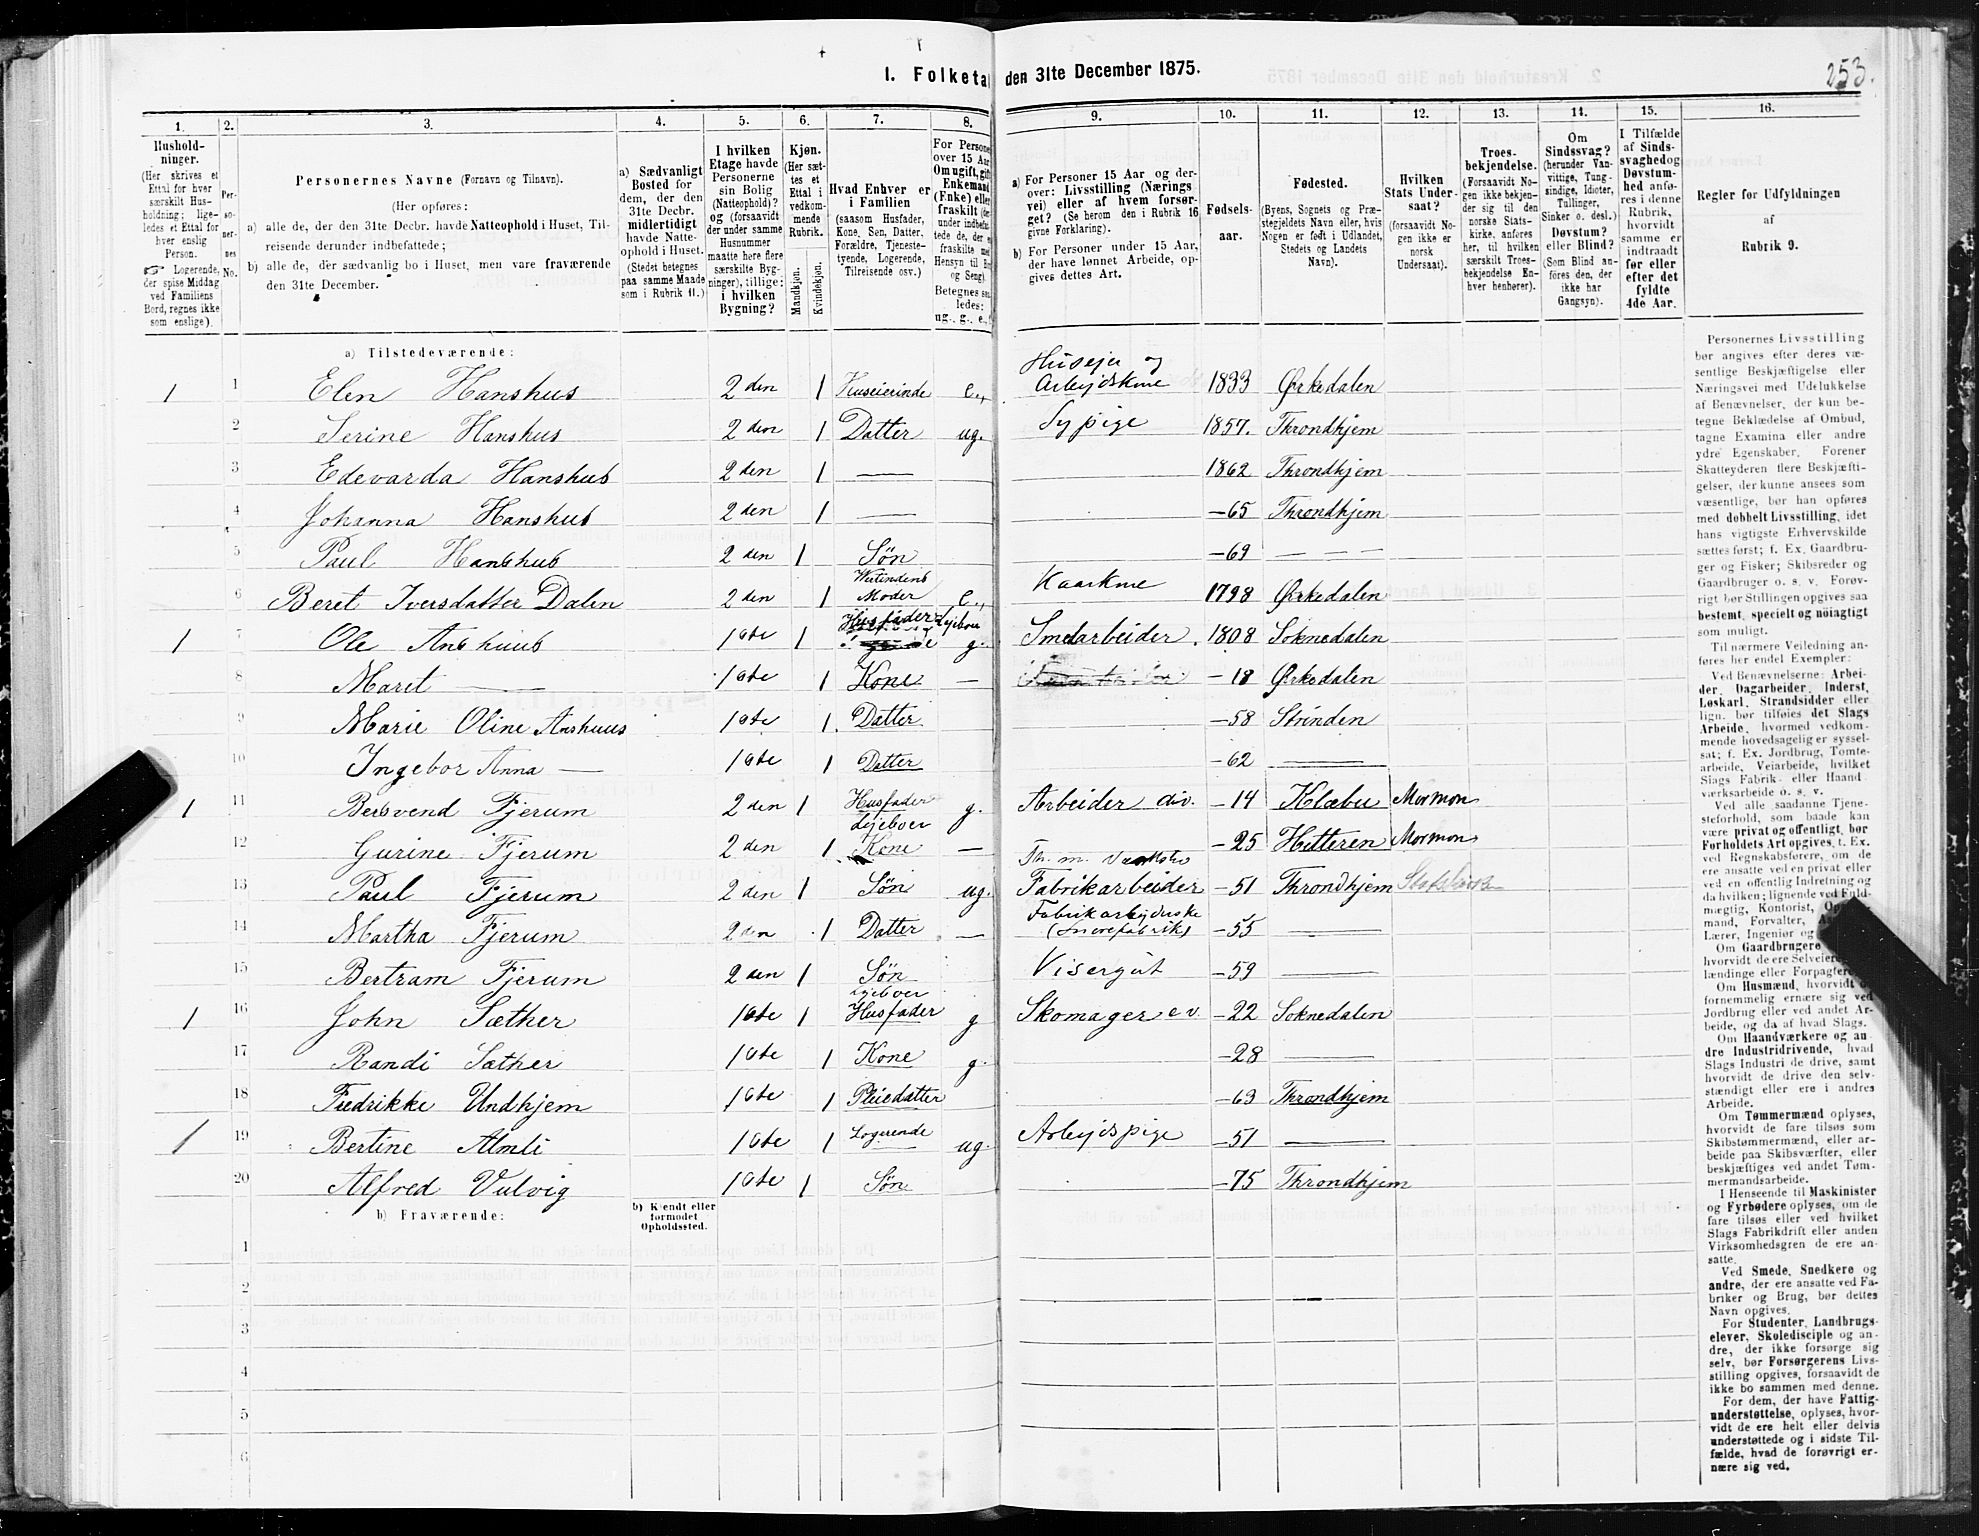 253.
I. Folketa den 31te December 1875.
1. 2. 3. 4. 5. 6. 7. 8. 9. 10. 11. 12. 13. 14. 15. 16.
Hushold-
ninger.
(Her skrives et
Ettal for hver
særskilt Hus-
holdning; lige-
ledes et Ettal for
hver enslig
Person.
☞ Logerende,
der spise Middag
ved Familiens
Bord, regnes ikke
som enslige).
Per-
so-
ner-
nes
No.
Personernes Navne (Fornavn og Tilnavn).
(Her opføres:
a) alle de, der den 31te Decbr. havde Natteophold i Huset, Til-
reisende derunder indbefattede;
b) alle de, der sædvanlig bo i Huset, men vare fraværende
den 31te December.
a) Sædvanligt
Bosted for
dem, der den
31te Decbr.
midlertidigt
havde Natte-
ophold i Huset.
(Stedet betegnes
paa samme Maade
som i Rubrik 11.)
I hvilken
Etage havde
Personerne
sin Bolig
(Natteophold)?
og (forsaavidt
der under samme
Husnummer
maatte høre flere
særskilte Byg-
ninger), tillige:
i hvilken
Bygning?
Kjøn.
(Her sæt-
tes et
Ettal i
vedkom-
mende
Rubrik.
Mandkjøn.
Kvindekjøn.
Hvad Enhver er
i Familien
(saasom Husfader,
Kone, Søn, Datter,
Forældre, Tjeneste-
tyende, Logerende,
Tilreisende osv.)
For Persone
over 15 Aar
Om ugift, gift
Enkemand
(Enke) eller
fraskilt
Betegnes saa-
ledes:
ug., g., e.,
a) For Personer 15 Aar og der-
over: Livsstilling (Nærings
vei) eller af hvem forsør-
get? (Se herom den i Rubrik 16
givne Forklaring).
b) For Personer under 15 Aar,
der have lønnet Arbeide, op-
gives dettes Art.
Fødsels-
aar.
Fødested.
(Byens, Sognets og Præ-
stegjeldets Navn eller, hvis
Nogen er født i Udlandet,
Stedets og Landets
Navn).
Hvilken
Stats Under-
saat?
(forsaavidt No-
gen ikke er
norsk
Undersaat).
Troes-
bekjendelse.
(Forsaavidt No-
gen ikke bekjen-
der sig til den
norske Stats-
kirke, anføres
her, til hvilken
særskilt Troes-
bekjendelse En-
hver henhører).
Om
Sindssvag?
(herunder Van-
vittige, Tung-
sindige, Idioter,
Tullinger,
Sinker o. desl.)
Døvstum?
eller Blind?
(Som Blind an-
føres den, der
ikke har
Gangsyn).
I Tilfælde
af Sinds-
svaghed og
Døvstum-
hed anfø-
res i denne
Rubrik,
hvorvidt
samme er
indtraadt
før eller
efter det
fyldte
4de Aar.
Regler for Udfyldningen
af
Rubrik 9.
a) Tilstedeværende:
1 1 Elen Hanshus 2den 1 Huseierinde e., Huseier og Arbejdskone 1833 Ørkedalen
2 Serine Hanshus 2den 1 Datter ug. Sypige 1857. Throndhjem
3 Edevarda Hanshus 2den 1 — 1862 Throndhjem
4 Johanna Hanshus 2den 1 — —65 Throndhjem
5 Paul Hanshus 2den 1 Søn —69 — — —
6 Beret Iversdatter Dalen 2den 1 Moder e., Kaarkone 1798 Ørkedalen
1 7 Ole Anshuus 1ste 1 Husfader Lejeboer g. Smedarbeider. 1808 Soknedalen
8 Marit — 1ste 1 Kone — —18 Ørkedalen
9 Marie Oline Anshuus 1ste 1. Datter —58 Strinden
10 Ingebor Anna — 1ste 1 Datter —62 —
1 11 Bersvend Fjerum 2den 1 Husfader Lejeboer g. Arbeider div. —14 Klæbu Mormon
12 Gurine Fjerum 2den 1 Kone — —25 Hitteren Mormon
13 Paul Fjerum 2den 1 Søn ug. Th. m. Værksted Fabrikarbeider —51 Throndhjem
14 Martha Fjerum 2den 1 Datter — Fabrikarbejderske —55 —
15 Bertram Fjerum 2den 1 Søn Visergut —59 —
1 16 John Sæther 1ste 1 Lejeboer Husfader g Skomager e v. —22 Soknedalen
17 Randi Sæther 1ste 1 Kone g. —28 —
18 Fredrikke Undhjem 1ste 1 Pleiedatter —63 Throndhjem
1 19 Bertine Almli 1ste 1 Logerende ug. Arbejdspige —51 —
20 Alfred Vulvig 1ste 1 Søn —75 Throndhjem
b) Fraværende:
b) Kjendt eller
formodet
Opholdssted.
1
2
3
4
5
6
Personernes Livsstilling
bør angives efter deres væ-
sentlige Beskjæftigelse eller
Næringsvei med Udelukkelse
af Benævnelser, der kun be-
tegne Beklædelse af Ombud,
tagne Examina eller andre
ydre Egenskaber. Forener
Skatteyderen flere Beskjæfti-
gelser, der kunne ansees som
væsentlige, bør han opføres
med dobbelt Livsstilling, idet
hans vigtigste Erhvervskilde
sættes først; f. Ex. Gaardbru-
ger og Fisker; Skibsreder og
Gaardbruger o. s. v. Forøv-
rigt bør Stillingen opgives saa
bestemt, specielt og nöiagtigt
som muligt.
Til nærmere Veiledning an-
føres her endel Exempler:
Ved Benævnelserne: Arbei-
der, Dagarbeider, Inderst,
Løskarl, Strandsidder eller
lign. bør tilføies det Slags
Arbeide, hvormed vedkom-
mende hovedsagelig er syssel-
sat; f. Ex. Jordbrug, Tomte-
arbeide, Veiarbeide, hvilket
Slags Fabrik- eller Haand-
værksarbeide o. s. v.
Ved alle saadanne Tjene-
steforhold, som baade kan
være privat og offentligt, bør
Forholdets Art opgives, t. Ex.
ved Regnskabsførere, om de
ere ansatte ved en privat eller
ved en offentlig Indretning og
da hvilken; lignende ved Fuld-
mægtig, Kontorist,
mand, Forvalter,
Lærer, Ingeniør og
Om Gaardbrugere
hvorvidt de ere Selveiere,
lændinge eller Forpagtere,
Om Husmænd, hvorvidt
fornemmelig ernære sig ved
Jordbrug eller ved andet Ar-
beide, og da af hvad Slags.
Om Haandværkere og an-
dre Industridrivende, hvad
Slags Industri de drive, samt
hvorvidt de drive den selv-
stændigt eller ere i andres
Arbeide.
Om Tømmermænd oplyses,
hvorvidt de fare tilsøs som
Skibstømmermænd, eller ar-
beide paa Skibsværfter, eller
beskjæftiges ved andet Tøm-
mermandsarbeide.
I Henseende til Maskinister
og Fyrbødere oplyses, om de
fare tilsøs eller ved hvilket
Slags Fabrikdrift eller anden
Virksomhedsgren de ere an-
satte.
Ved Smede, Snedkere og
andre, der ere ansatte ved Fa-
briker og Brug, bør dettes
Navn opgives.
For Studenter, Landbrugs-
elever, Skoledisciple og an-
dre, der ikke forsørge sig
selv, bør Forsørgerens Livs-
stilling opgives, forsaavidt de
ikke bo sammen med denne.
For dem, der have Fattig-
understøttelse, oplyses, hvor-
vidt de ere helt eller delvis
understøttede og i sidste Til-
fælde, hvad de forøvrigt er-
nære sig ved.